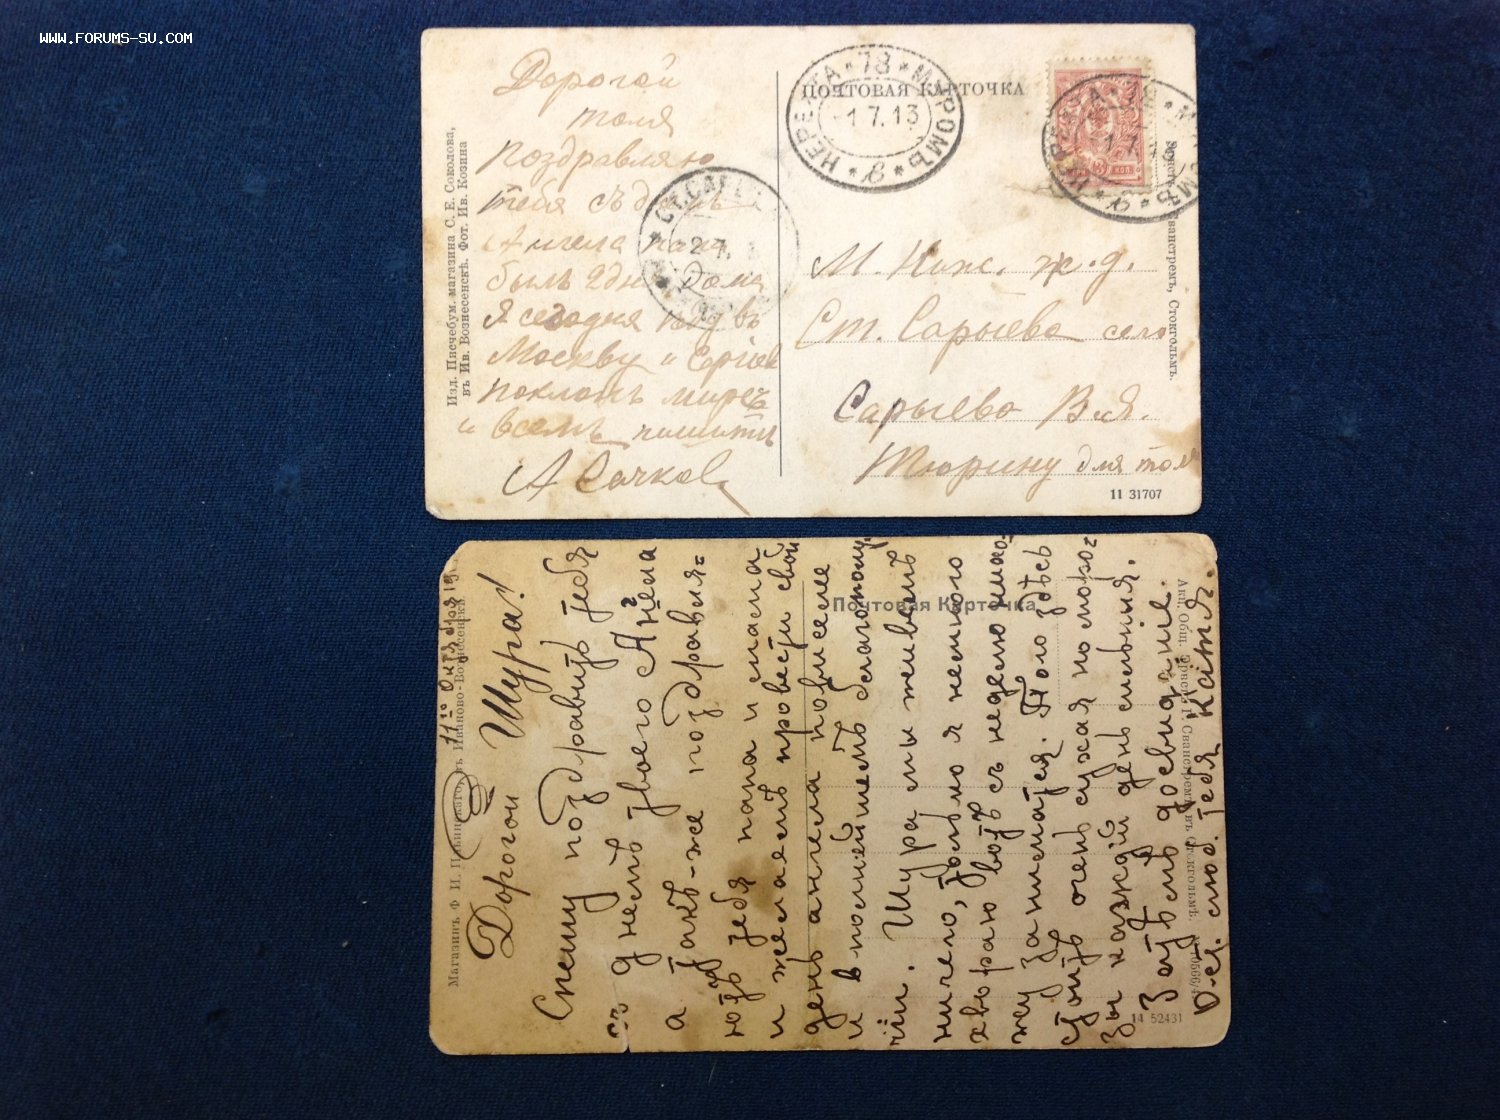 WWW.FORUMS-SU.COM
Изд. Писчебум. магазина С. Е. Соколова,
въ Ив. Вознесенскѣ. Фот. Ив. Козина
Дорогой
толя
поздравляю
тебя съ днемъ
Ангела папа
былъ 2 дня дома
Я сегодня въ
Москву и
поклонъ
и всемъ пишите
А Сачков
ПОЧТОВАЯ КАРТОЧКА
НЕРЕХТА * 78 * МУРОМЪ * в *
1 7.13
СТ. САРЫЕВО
2 7. 13
М. Ниж. ж.д.
Ст. Сарыево село
Сарыево В.И.Я.
Тюрину для толи
Стокгольмъ.
11 31707
Магазинъ Ф. И. Ильинскаго, въ Иваново-Вознесенскѣ.
11го Октября 19
Дорогой Шура!
Спешу поздравить тебя
съ днемъ твоего Ангела
а такъ-же поздравля=
ютъ тебя папа и мама
и желаемъ провести свой
день ангела повиселе
и въ полнейшемъ благополу
чiи. Шура мы живемъ
ничего, только я немного
хвораю вотъ съ неделю нико=
жу заниматся. Погода здѣсь
стоитъ очень сухая но моро=
зы каждiй день сильныя.
Затѣмъ досвиданiе
Ост. люб. тебя Катя.
Почтовая Карточка
Акц. Общ. Эрнстъ Г. Сванстремъ, въ Стокгольмѣ.
14 52431